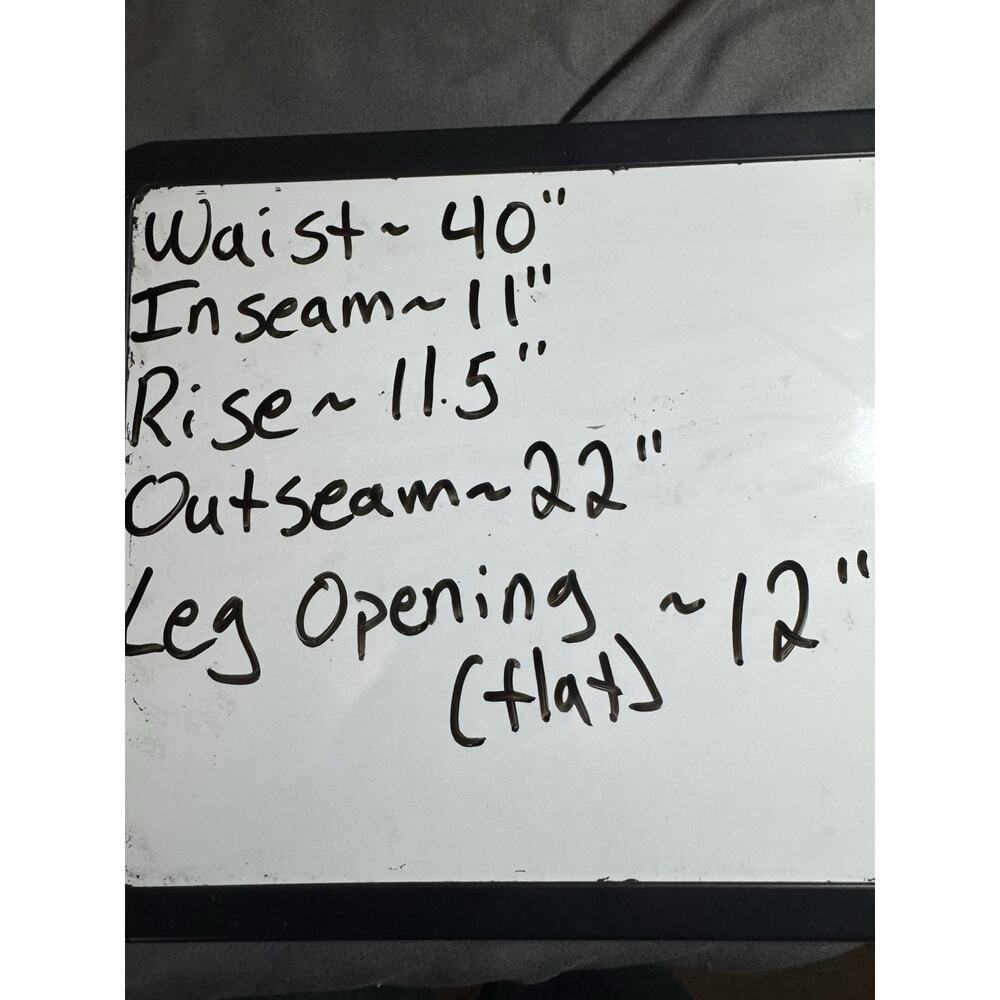 Waist ~ 40"
Inseam ~ 11"
Rise ~ 11.5"
Outseam ~ 22"
Leg Opening ~ 12"
(flat)